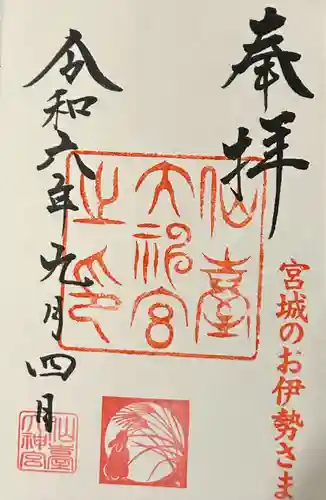 奉拝
宮城のお伊勢さま
仙臺
大神宮
之印
令和六年九月四月
仙臺
大神宮